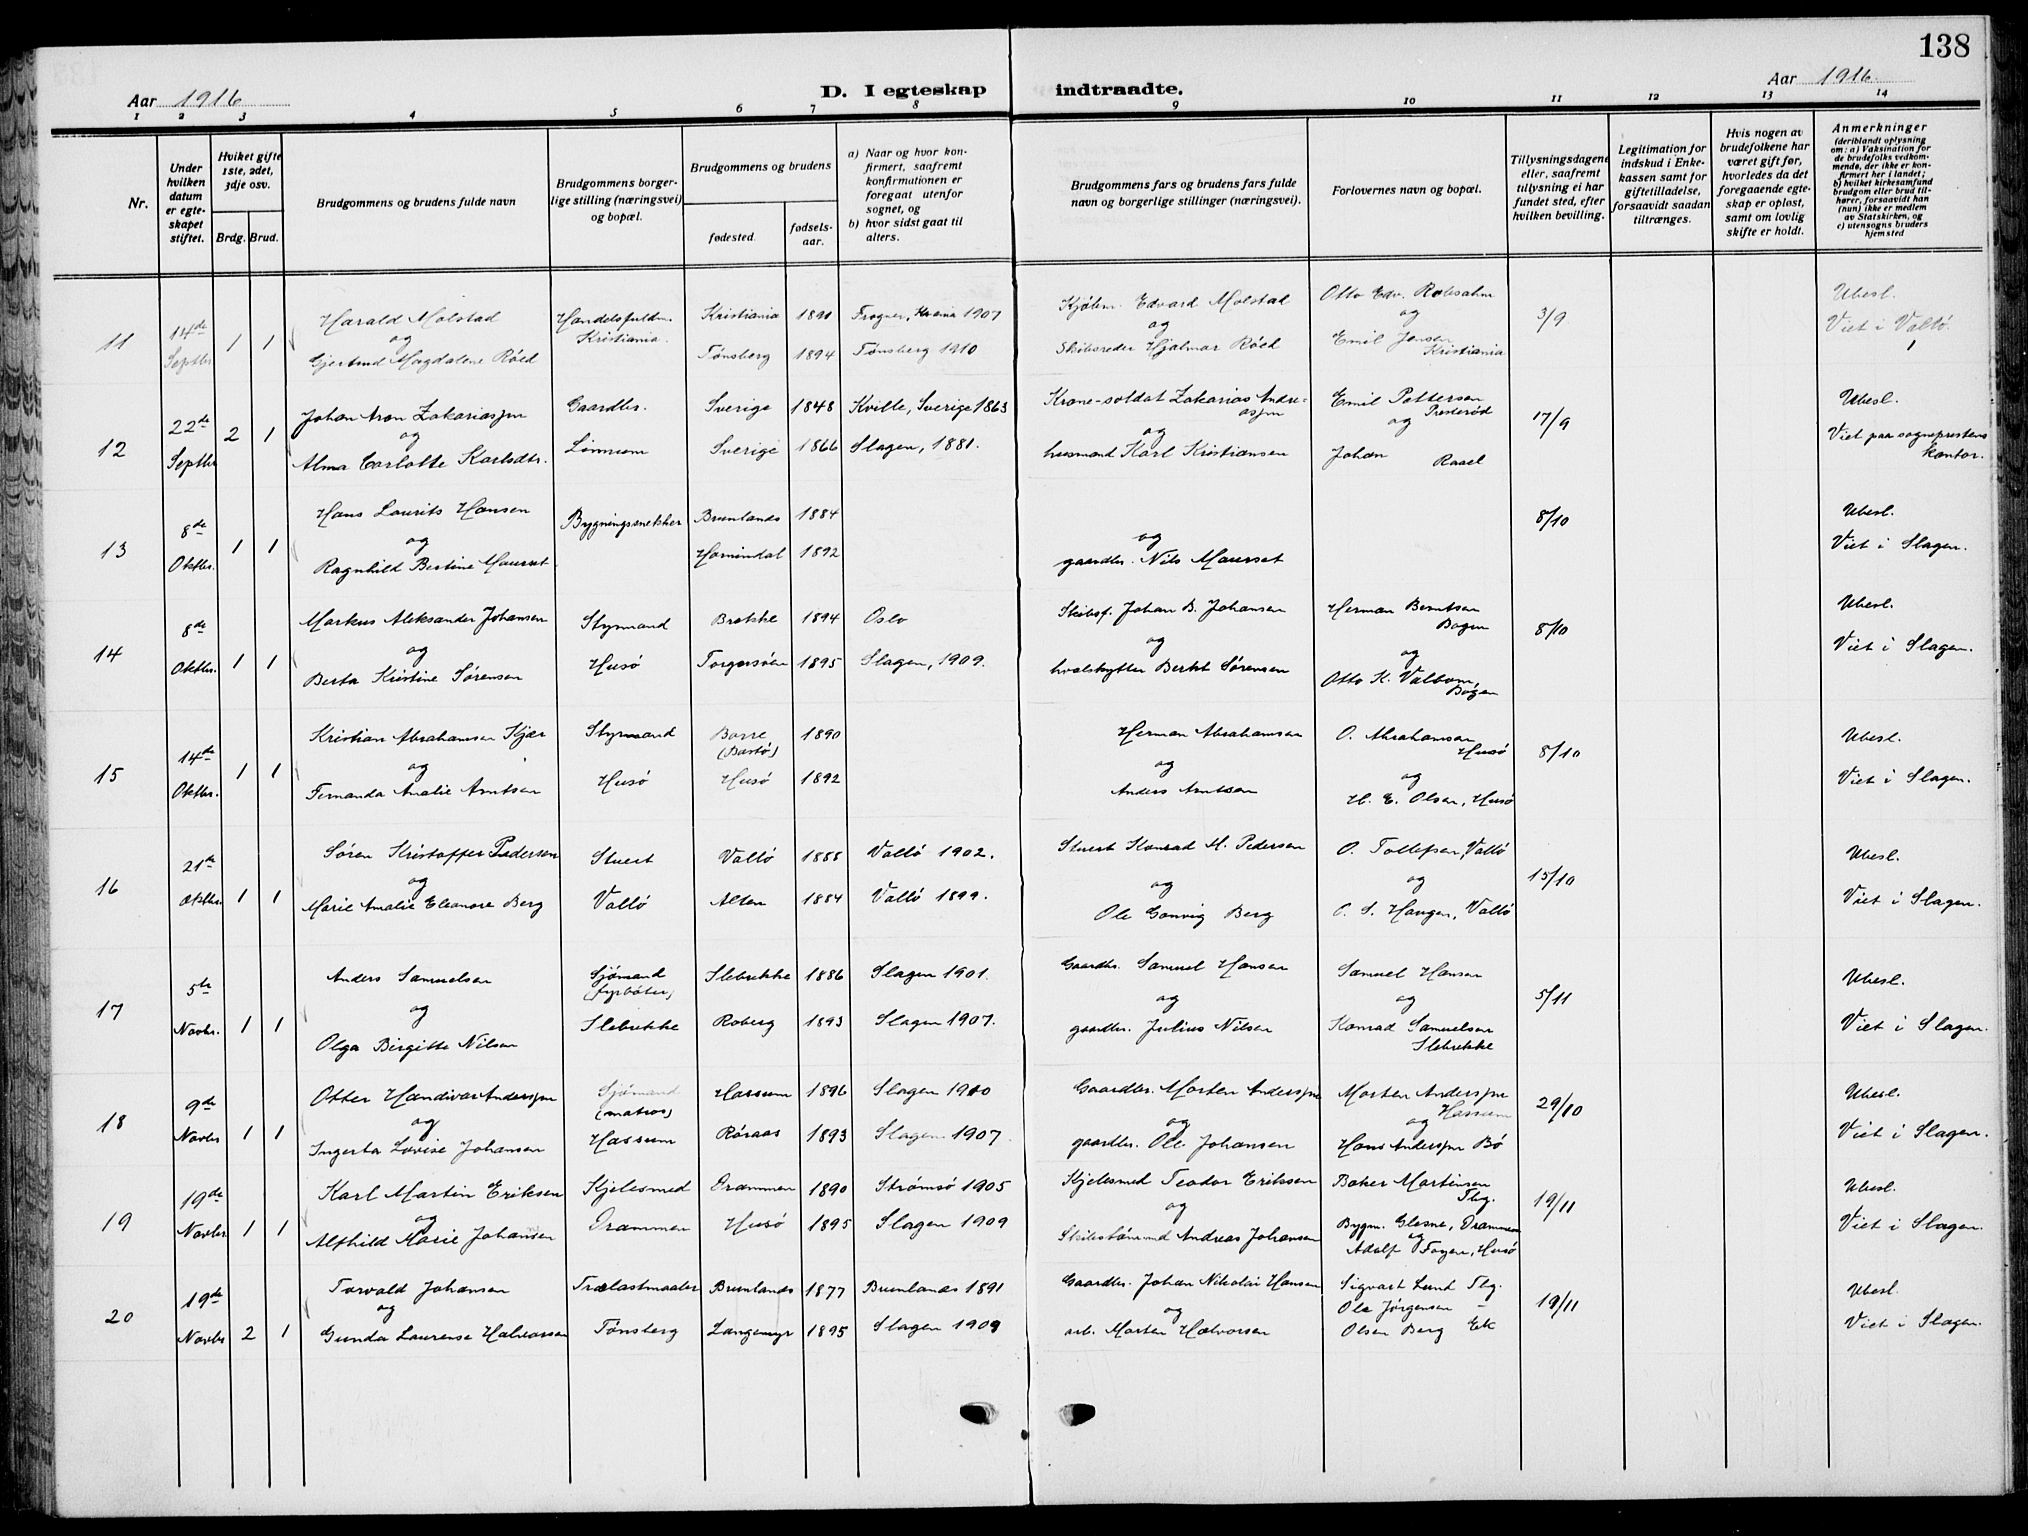 138
Aar 1916
D. I egteskap indtraadte.
Aar 1916.
1 2 3 4 5 6 7 8 9 10 11 12 13 14
Nr.
Under hvilken datum er egteskapet stiftet.
Hviket gifte 1ste, 2det, 3dje osv.
Brdg. Brud.
Brudgommens og brudens fulde navn
Brudgommens borgerlige stilling (næringsvei) og bopæl.
Brudgommens og brudens
fødested. fødselsaar.
a) Naar og hvor konfirmert, saafremt konfirmationen er foregaat utenfor sognet, og
b) hvor sidst gaat til alters.
Brudgommens fars og brudens fars fulde navn og borgerlige stillinger (næringsvei).
Forlovernes navn og bopæl.
Tillysningsdagene eller, saafremt tillysning ei har fundet sted, efter hvilken bevilling.
Legitimation for indskud i Enkekassen samt for giftetilladelse, forsaavidt saadan tiltrænges.
Hvis nogen av brudefolkene har været gift før, hvorledes da det foregaaende egteskap er opløst, samt om lovlig skifte er holdt.
Anmerkninger (deriblandt oplysning om: a) Vaksination for de brudefolks vedkommende, der ikke er konfirmert her i landet; b) hvilket kirkesamfund brudgom eller brud tilhører, forsaavidt han (nun) ikke er medlem av Statskirken, og c) utensogns bruders hjemsted
11 14de Septbr 1 1 Harald Molstad Handelsfuldm. Kristiania 1891 Frogner, Kr.ania 1907 Kjøbm. Edvard Molstad Otto Edv. Robsahm 3/9 Ubesl.
og Kristiania. og og Viet i Vallø.
Gjertrud Magdalene Røed Tønsberg 1894 Tønsberg 1910 Skibsreder Hjalmar Røed Emil Jensen Kristiania
12 22de Septbr 2 1 Johan Aron Zakariassen Gaardbr. Sverige 1848 Kville, Sverige 1863 Krone-soldat Zakarias Andreassen Emil Pettersen Presterød 17/9 Ubesl.
og og og Viet paa sogneprestens kontor.
Alma Carlotte Karlsdtr. Lønnum Sverige 1866 Slagen, 1881. husmand Karl Kristiansen Johan Raael
13 8de Oktbr. 1 1 Hans Laurits Hansen Bygningssnekker Brunlanes 1884 8/10 Ubesl.
og og Viet i Slagen.
Ragnhild Bertine Maurset Hornindal 1892 gaardbr. Nils Maurset
14 8de Oktbr. 1 1 Markus Aleksander Johansen Styrmand Brekke 1894 Oslo Skibsf. Johan B. Johansen Herman Berntsen Bogen 8/10 Ubesl.
og og og Viet i Slagen.
Berta Kristine Sørensen Husø Torgersøen 1895 Slagen, 1909. hvalskytter Berht Sørensen Otto K. Valbom, Bogen
15 14de Oktbr. 1 1 Kristian Abrahamsen Kjær Styrmand Borre (Bastø) 1890 Herman Abrahamsen O. Abrahamsen Husø 8/10 Ubesl.
og og og Viet i Slagen.
Fernanda Amalie Arntsen Husø Husø 1892 Anders Arntsen H. E. Olsen, Husø
16 21de Oktbr 1 1 Søren Kristoffer Pedersen Stuert Vallø 1888 Vallø 1902. Stuert Konrad M. Pedersen O. Tollefsen, Vallø 15/10 Ubesl.
og og og Viet i Slagen.
Marie Amalie Eleanore Berg Vallø Alten 1884 Vallø 1899. Ole Conrig Berg O. S. Haugen, Vallø
17 5te Novbr. 1 1 Anders Samuelsen Sjømand (fyrbøter) Slebrekke 1886 Slagen 1901. Gaardbr. Samuel Hansen Samuel Hansen 5/11 Ubesl.
og og og Viet i Slagen.
Olga Birgitte Nilsen Slebrekke Roberg 1893 Slagen 1907. gaardbr. Julius Nilsen Konrad Samuelsen Slebrekke
18 9de Novbr 1 1 Otter Handivar Anderssen Sjømand (matros) Hassum 1896 Slagen 1910 Gaardbr. Morten Anderssen Morten Anderssen Hassum 29/10 Ubesl.
og og og Viet i Slagen.
Ingerta Lovise Johansen Hassum Røraas 1893 Slagen 1907. gaardbr. Ole Johansen Hans Anderssen Bø
19 19de Novbr 1 1 Karl Martin Eriksen Kjelesmed Drammen 1890 Strømsø 1905 Kjelesmed Teodor Eriksen Baker Martinsen Tbg. 19/11 Ubesl.
og og Bygm. Glesne, Drammen og Viet i Slagen.
Alfhild Marie Johansen Drammen Husø 1895 Slagen 1909 Skibstømmerm Andreas Johansen Adolf Foyen, Husø
20 19de Novbr 2 1 Torvald Johansen Trælastmaaler Brunlanes 1877 Brunlanes 1891 Gaardbr. Johan Nikolai Hansen Sigvart Lund Tbg. 19/11 Ubesl.
og og Ole Jørgensen - Viet i Slagen.
Gunda Laurense Halvorsen Tønsberg Langemyr 1895 Slagen 1909 arb. Morten Halvorsen Olsen Berg Ek